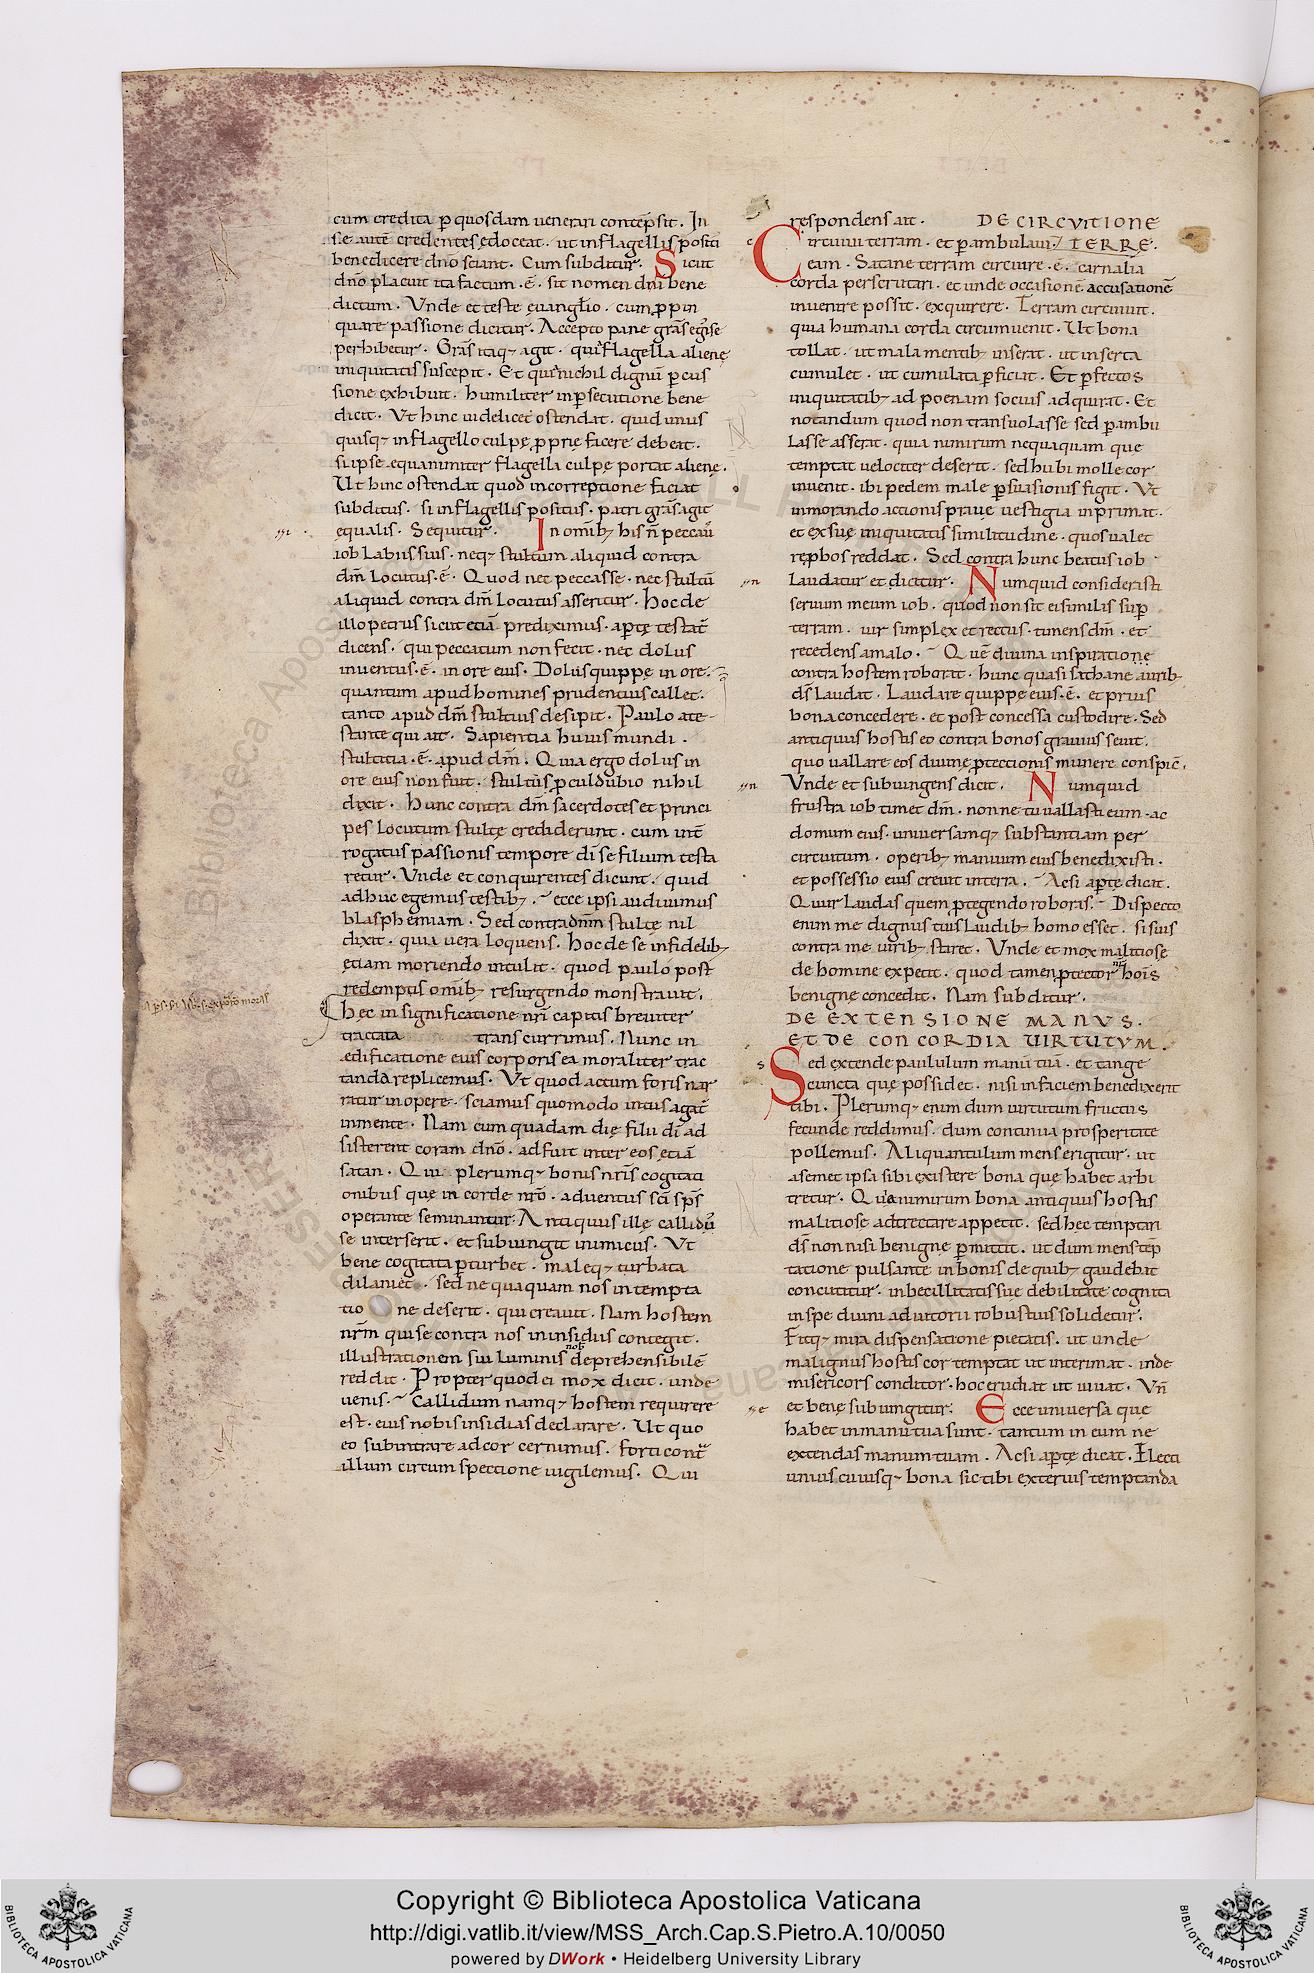 cum credita ꝑ quosdam uenerari contēpsit. In
se autē credentes edoceat. ut inflagellis positi
benedicere dn̄o sciant. Cum subditur. Sicut
dn̄o placuit ita factum .ē. sit nomen dn̄i bene
dictum. Vnde et teste euanglio. cum ꝓpin
quare passione dicitur. Accepto pane
perhibetur. Gr̄as itaq; agit. qui flagella alienę
iniquitatis suscepit. Et qui nichil dignū ꝑcus
sione exhibuit. humiliter in ꝑsecutione bene
dicit. Vt hinc uidelicet ostendat. quid unus
quisq; inflagello culpę ꝓprię facere debeat.
si ipse equanimiter flagella culpę portat alienę.
Ut hinc ostendat quod incorreptione faciat
subditus. si inflagellis positus. patri gr̄as agit
ęqualis. Sequitur. In omib; his n̄ peccau̅
iob labiis suis. neq; stultum aliquid contra
dm̄ locutus .ē. Quod nec peccasse. nec stultū
aliquid contra dm̄ locutus asseritur. hoc de
illo petrus sicut etiā prediximus. aꝑtę testat̄
dicens. qui peccatum non fecit. nec dolus
inuentus .ē. in ore eius. Dolus quippę in ore.
quantum apud homines prudentius callet.
tanto apud dm̄ stultius desipit. Paulo ate-
stante qui ait. Sapientia huius mundi.
stultitia .ē. apud dm̄. Quia ergo dolus in
ore eius non fuit. stultūs ꝓculdubio nihil
dixit. Hunc contra dm̄ sacerdotes et princi
pes locutum stultę crediderunt. cum int̄
rogatus passionis tempore di se filium testa
retur. Vnde et conquirentes dicunt. quid
adhuc egemus testib;. ecce ipsi audiuimus
blasphemiam. Sed contra dn̄m stultę nil
dixit. quia uera loquens. hoc de se infidelib;
etiam moriendo intulit. quod paulo post
redemptis omib; resurgendo monstrauit.
hec in significatione nr̄i capitis breuiter
tractata transcurrimus. Nunc in
edificatione eius corporis ea moraliter trac
tanda replicemus. Vt quod actum foris nar
ratur in opere. sciamus quomodo intus agat̄
in mente. Nam cum quadam die filii di ad
sisterent coram dn̄o. adfuit inter eos etiā
satan. Qui plerumq; bonis nr̄is cogitati
onibus que in corde nr̄o. aduentus sc̄i sp̄s
operante seminantur. Antiquus ille callidu̅
se interserit. et subiungit inimicus. Vt
bene cogitata ꝑturbet. maleq; turbata
dilaniet. sed ne quaquam nos in tempta
tione deserit. qui creauit. Nam hostem
nr̄m qui se contra nos in insidiis contegit.
illustrationem sui luminis nob̄ deprehensibilē
reddit. Propter quod ei mox dicit. unde
uenis. Callidum namq; hostem requirere
est. eius nobis insidias declarare. Ut quo
eo subintrare ad cor cernimus. forti cont̄
illum circumspectione uigilemus. Qui
A
ꝑs. ſi
respondens ait. DE CIRCVITIONE
c Circuiui terram. et ꝑambulaui TERRĘ.
eam. Satane terram circuire .ē. carnalia
corda perscrutari. et unde occasionē accusationē
inuenire possit. exquirere. Terram circuiuit.
quia humana corda circumuenit. Ut bona
tollat. ut mala mentib; inserat. ut inserta
cumulet. ut cumulata ꝑficiat. Et ꝑfectos
iniquitatib; ad poenam socius adquirat. Et
notandum quod non transuolasse sed ꝑambu
lasse asserat. quia nimirum nequaquam que
temptat uelociter deserit. sed hubi molle cor
inuenit. ibi pedem male ꝑsuasionis figit. Vt
inmorando actionis prauę uestigia inprimat.
et ex suę iniquitatis similitudine. quos ualet
reꝓbos reddat. Sed contra hunc beatus iob
laudatur et dicitur. Numquid considerasti
seruum meum iob. quod non sit ei similis suꝑ
terram. uir simplex et rectus. timens dm̄. et
recedens a malo. Quē diuina inspiratione
contra hostem roborat. hunc quasi sathane aurib;
ds̄ laudat. Laudare quippę eius .ē. et prius
bona concedere. et post concessa custodire. Sed
antiquus hostis eo contra bonos grauius seuit.
quo uallare eos diuine ꝓtectionis munere conspic̄.
Vnde et subiungens dicit. Numquid
frustra iob timet dm̄. nonne tu uallasti eum. ac
domum eius. uniuersamq; substantiam per
circuitum. operib; manuum eius benedixisti.
et possessio eius creuit in terra. Acsi aꝑtę dicat.
Quur laudas quem ꝓtegendo roboras. Dispecto
enim me dignus tuis laudib; homo esset. si suis
contra me uirib; staret. Vnde et mox malitiose
de homine expetit. quod tamen ptector hois
benignę concedit. Nam subditur.
DE EXTENSIONE MANVS.
ET DE CONCORDIA VIRTVTVM.
s Sed extende paululum manū tuā. et tange
cuncta quę possidet. nisi in faciem benedixerit
tibi. Plerumq; enim dum uirtutum fructus
fecunde reddimus. dum continua prosperitate
pollemus. Aliquantulum mens erigitur. ut
a semet ipsa sibi existere bona que habet arbi
tretur. Que nimirum bona antiquus hostis
malitiose adtrectare appetit. sed hec temptari
ds̄ non nisi benignę ꝑmittit. ut dum mens tēp
tatione pulsante in bonis de quib; gaudebat
concutitur. inbecillitatis suę debilitate cognita
inspe diuini adiutorii robustius solidetur.
Fitq; mira dispensatione pietatis. ut unde
malignus hostis cor temptat ut interimat. inde
misericors conditor. hoc erudiat ut uiuat. Vn̄
et benę subiungitur. Ecce uniuersa quę
habet in manu tua sunt. tantum in eum ne
extendas manum tuam. Acsi aꝑtę dicat. Electi
unius cuiusq; bona sic tibi exterius temptanda
Copyright © Biblioteca Apostolica Vaticana
http://digi.vatlib.it/view/MSS_Arch.Cap.S.Pietro.A.10/0050
powered by DWork • Heidelberg University Library
BIBLIOTECA APOSTOLICA VATICANA
BIBLIOTECA APOSTOLICA VATICANA